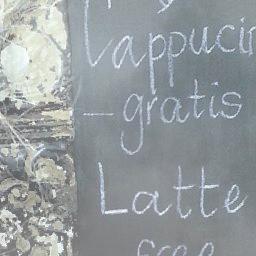 Cappucin
- gratis
Latte
free